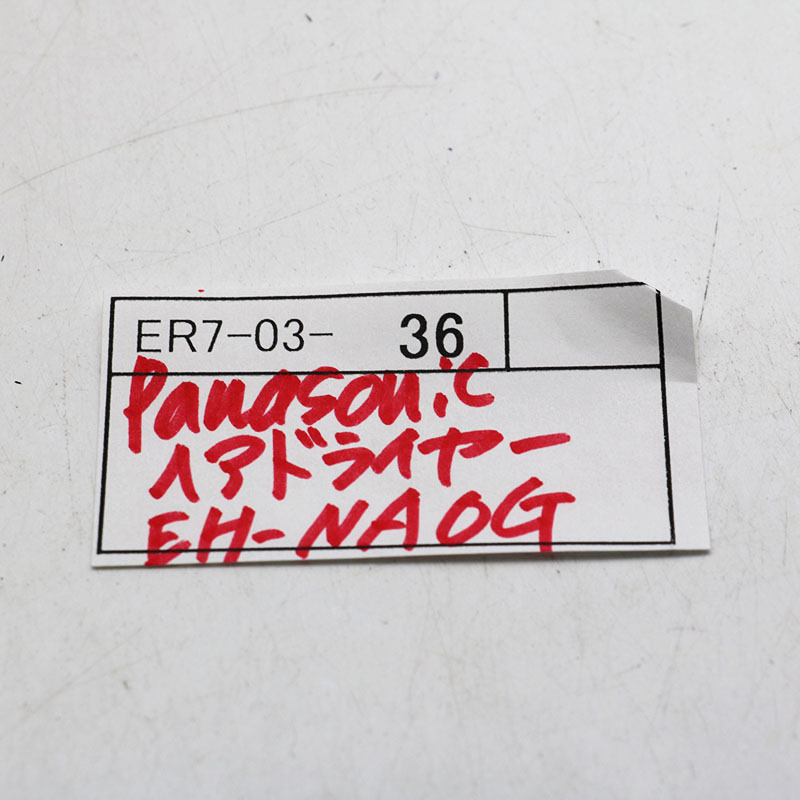 ER7-03- 36
Panasonic
ヘアドライヤー
EH-NA0G